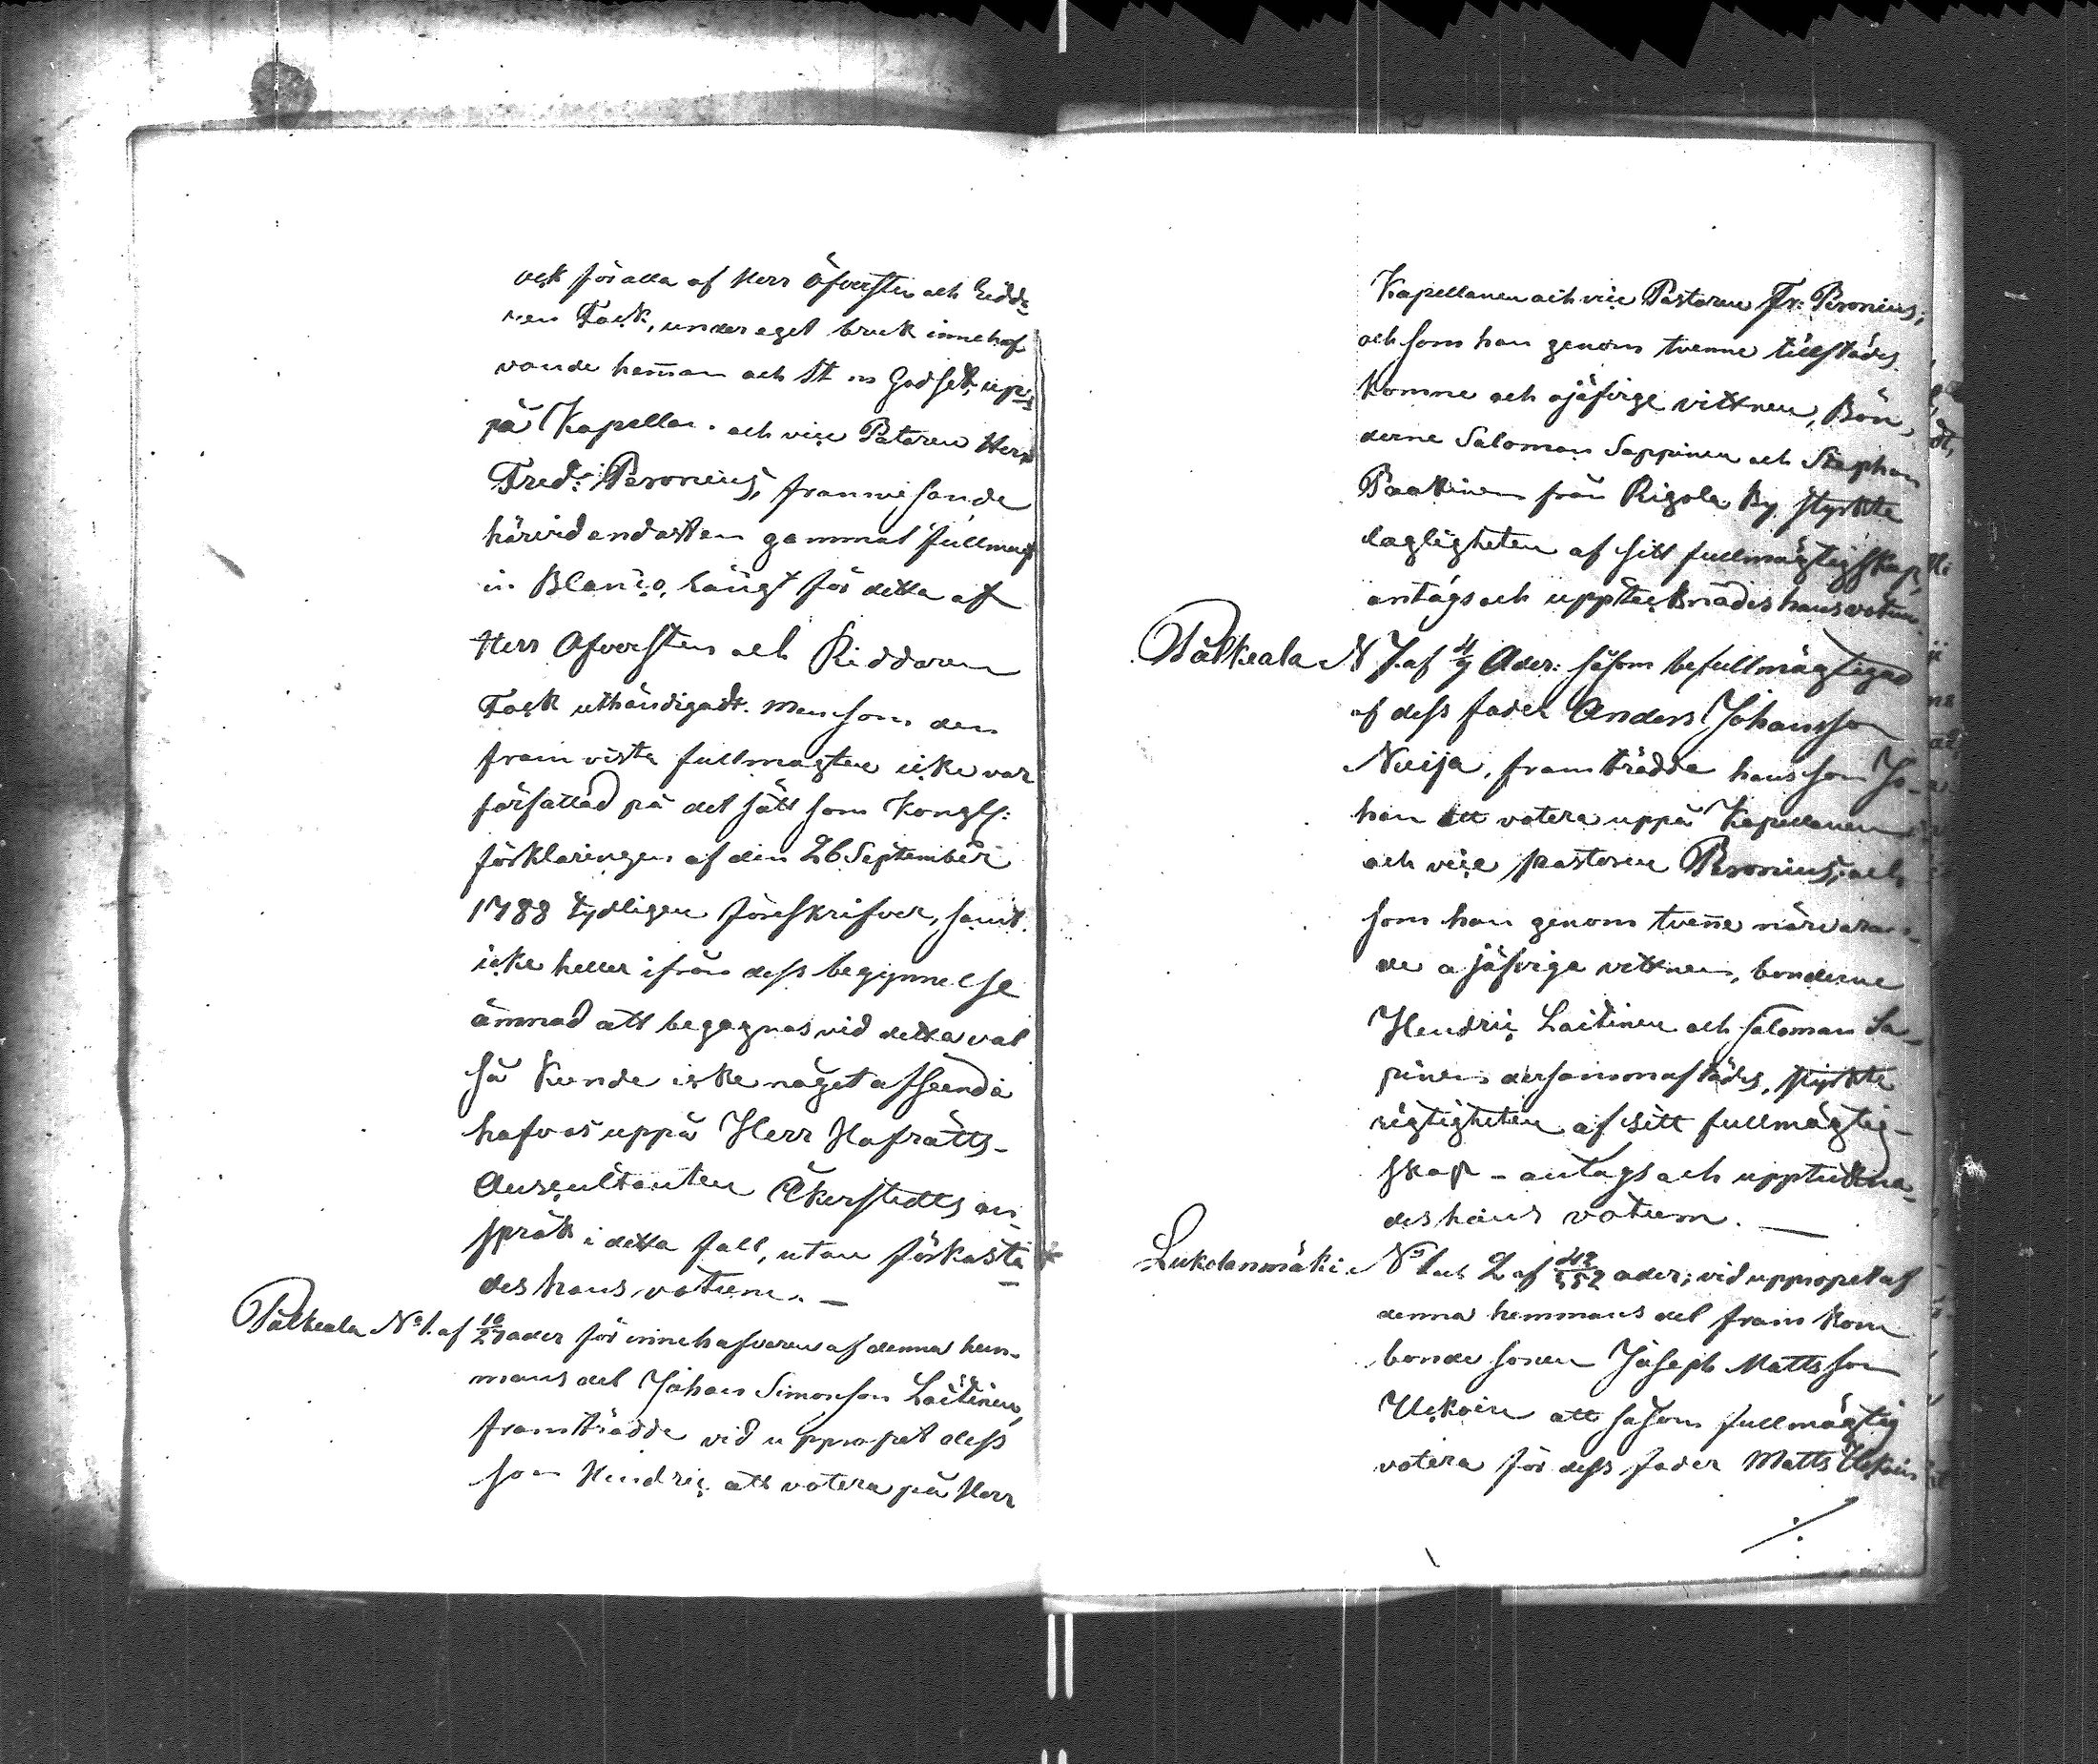 och för alla af Herr Öfversten och Ridda
ren Fock, under eget bruk innehaf
vande hem̄an och St m Godset, up=
på Kapellan. och vice Patoren Herr
Fred: Peronius, framvisande
härvid endast en gammal fullmagt
in Blanco, längt för detta af
Herr Öfversten och Riddaren
Fock uthändigadt. Men som den
framviste fullmagten icke var
författad på det sätt som Kongl:
förklaringen af den 26 September
1788 tydligen föreskrifver, samt
icke heller ifrån dess begynnelse
ämnad att begagnas vid detta val
så kunde icke något afseende
hafvas uppå Herr Hofrätts-
Auscultanten Åkerstedts an-
språk i detta fall, utan förkasta
des hans votum. —
Pälkeala No 1. af 10/27 ader för innehafvaren af denna hem-
mans del Johan Simonson Laitinen,
framträdde vid uppropet dess
son Hendric att votera på Herr
Kapellanen och vice Pastoren Fr: Peronius;
och som han genom tvenne tillstädes
komne och ojäfvige vittnen, Bön,
derne Saloman Sappinen och Stephan
Paakinen från Rigola By styrkte
lagligheten af sitt fullmägtigskap,
antogs och upptecknades hans votum.
Pälkeala N 7. af 4/9 Ader: såsom befullmägtigad
af dess fader Anders Johansson
Nuija, framträdde hans son Jo-
han att votera uppå Kapellanen
och vice pastoren Peronius, och
som han genom tven̄e närvaran-
de ojäfviga vittnen, bönderne
Hendric Laitinen och Saloman Sa-
pinen dersammastädes, styrkte
rigtigheten af sitt fullmägtig-
skap - antogs och upptekna-
des hans votum. —
Lukolanmäki No 1 och 2 af 42/552 ader; vid uppropet af
denna hemmans del fram kom
bonde sonen Joseph Mattsson
Ukkoin att såsom fullmägtig
votera för dess fader Matts Ukkoin
./.